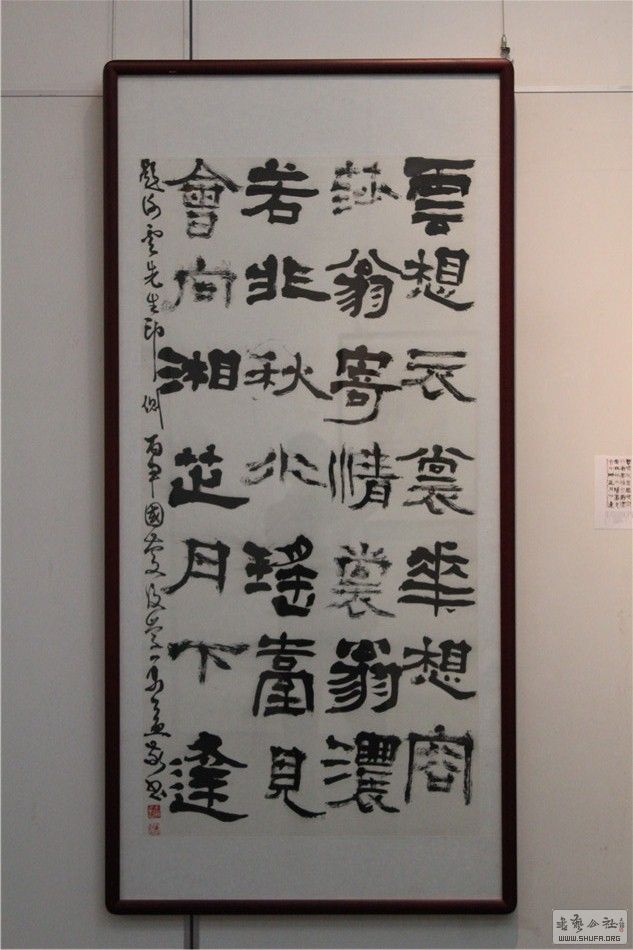 雲想衣裳華想容
莎翁寄情裳翁濃
若非秋水瑤臺見
會向湘芷月下逢
題 雲先生印側 國慶後學 敬書
书艺公社
WWW.SHUFA.ORG